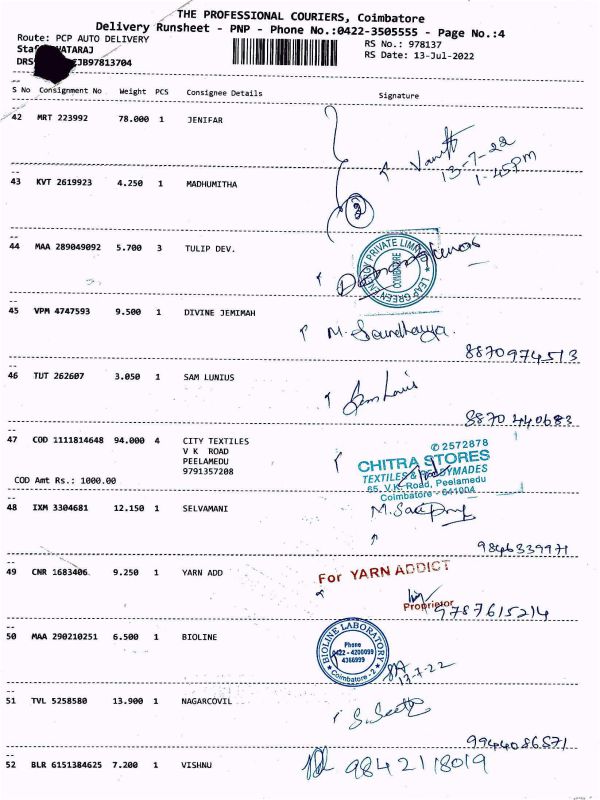 THE PROFESSIONAL COURIERS, Coimbatore
Delivery Runsheet - PNP - Phone No.:0422-3505555 - Page No.:4
Route: PCP AUTO DELIVERY
RS No.: 978137
RS Date: 13-Jul-2022
S No Consignment No Weight PCS Consignee Details Signature
42 MRT 223992 78.000 1 JENIFAR
13-7-22
1-45PM
43 KVT 2619923 4.250 1 MADHUMITHA
2
44 MAA 289049092 5.700 3 TULIP DEV.
LEAF GREEN ENERGY PRIVATE LIMITED
COIMBATORE
45 VPM 4747593 9.500 1 DIVINE JEMIMAH
M. Soundhayya.
8870974513
46 TUT 262607 3.050 1 SAM LUNIUS
8870440683
47 COD 1111814648 94.000 4 CITY TEXTILES
V K ROAD
PEELAMEDU
9791357208
COD Amt Rs.: 1000.00
✆ 2572878
CHITRA STORES
TEXTILES & READYMADES
65, V.K. Road, Peelamedu
Coimbatore - 641004
48 IXM 3304681 12.150 1 SELVAMANI
9846339971
49 CNR 1683406 9.250 1 YARN ADD
For YARN ADDICT
Proprietor
9787615214
50 MAA 290210251 6.500 1 BIOLINE
BIOLINE LABORATORY
Phone
0422 - 4200099
4366999
Coimbatore - 2
13-7-22
51 TVL 5258580 13.900 1 NAGARCOVIL
9944086571
52 BLR 6151384625 7.200 1 VISHNU
9842118019